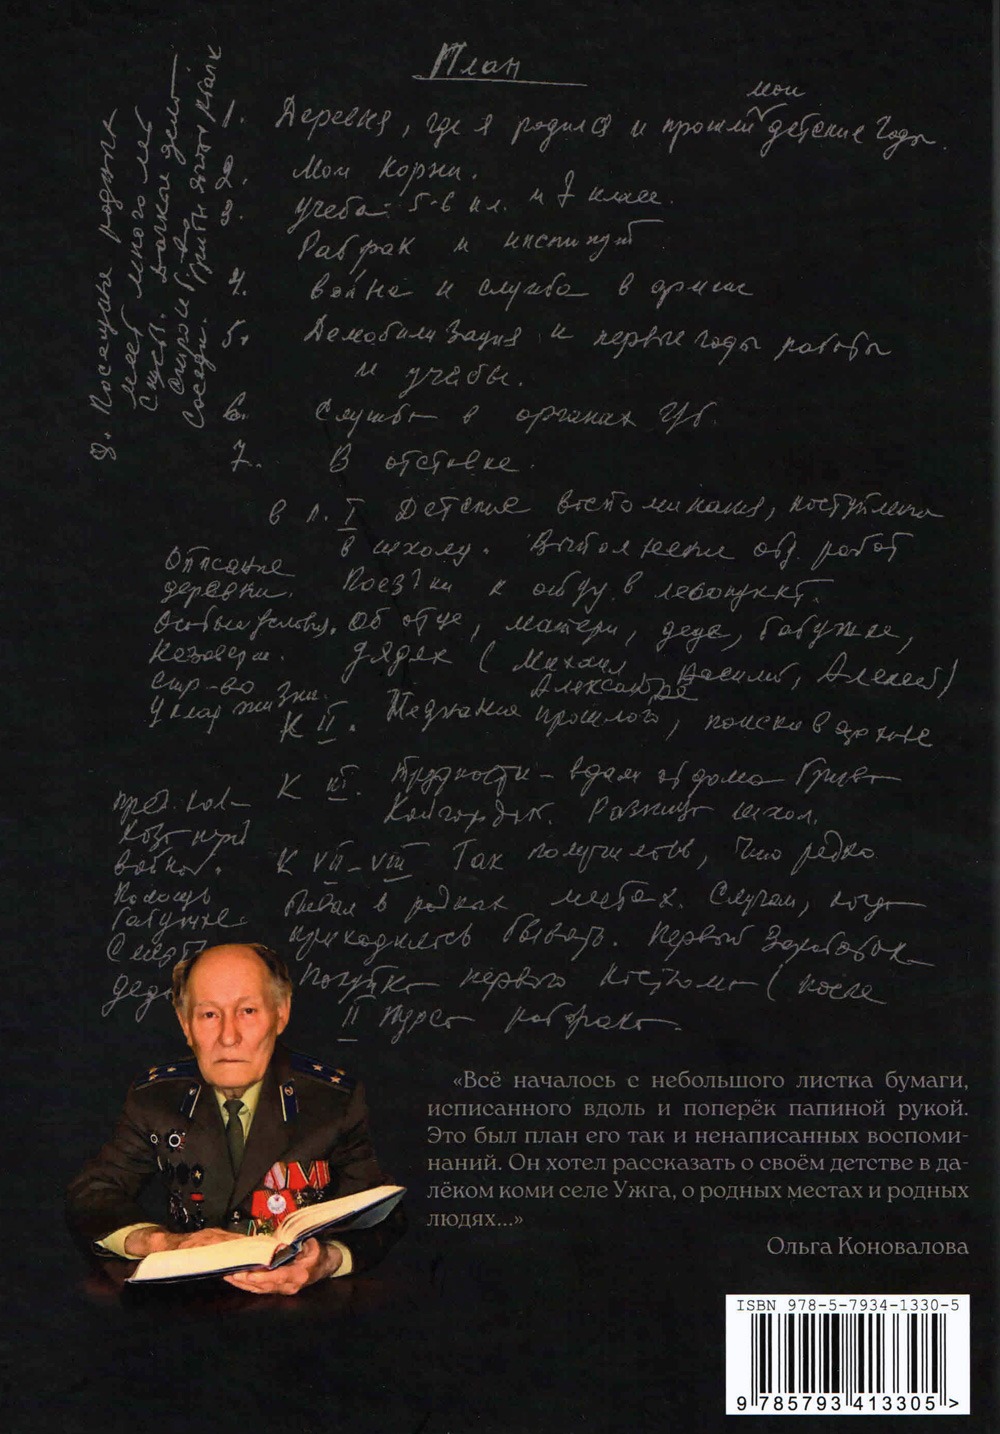 План
1. Деревня, где я родился и прошли мои детские годы.
2. Мои корни.
3. Учеба: 5-в кл. и 7 класс.
Рабфак и институт
4. война и служба в армии
5. Демобилизация и первые годы работы
и учёбы.
6. Служба в органах ГБ.
7. В отставке.
8. Посещение родных
мест много лет
соседи.
в п. I Детские воспоминания, поступление
в школу. Выполнение работ
Поездки к в лесопункт.
Об отце, матери, деде, бабушке,
дядях (Михаил, Василий, Алексей)
Александре
Описание
деревни.
Особые условия.
стр-во
уклад жизни.
К II. прошлого, поиски в архиве
К III. Трудности – вдали от дома Гривы
Койгородок. Разница школ.
войной.
Помощь
бабушке.
Смерть
деда
К VII–VIII Так получилось, что редко
бывал в родных местах. Случаи, когда
приходилось бывать. Первый заработок
Покупка первого костюма (после
II курса рабфака.
«Всё началось с небольшого листка бумаги,
исписанного вдоль и поперёк папиной рукой.
Это был план его так и ненаписанных воспоми-
наний. Он хотел рассказать о своём детстве в да-
лёком коми селе Ужга, о родных местах и родных
людях...»
Ольга Коновалова
ISBN 978-5-7934-1330-5
9 785793 413305 >